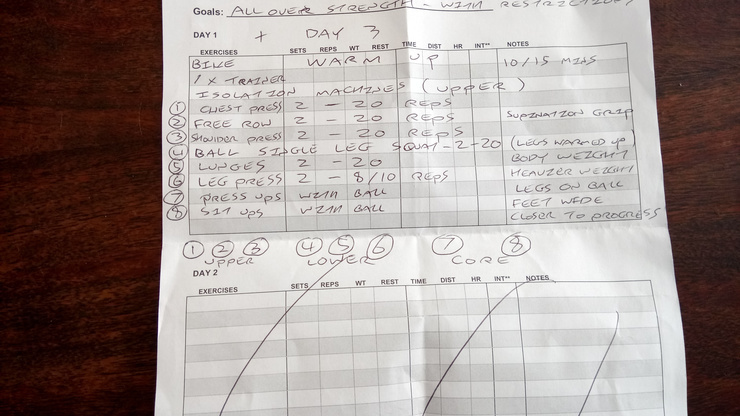 Goals: ALL OVER STRENGTH - WITH RESTRICTIONS
DAY 1 + DAY 3
EXERCISES SETS REPS WT REST TIME DIST HR INT** NOTES
BIKE WARM UP 10/15 MINS
1 X TRAINER
ISOLATION MACHINES (UPPER)
① CHEST PRESS 2 - 20 REPS
② FREE ROW 2 - 20 REPS SUPINATION GRIP
③ SHOULDER PRESS 2 - 20 REPS
④ BALL SINGLE LEG SQUAT - 2 - 20 (LEGS WARMED UP)
⑤ LUNGES 2 - 20 BODY WEIGHT
⑥ LEG PRESS 2 - 8/10 REPS HEAVIER WEIGHT
⑦ PRESS UPS WITH BALL LEGS ON BALL
⑧ SIT UPS WITH BALL FEET WIDE
CLOSER TO PROGRESS
① ② ③ ④ ⑤ ⑥ ⑦ ⑧
UPPER LOWER CORE
DAY 2
EXERCISES SETS REPS WT REST TIME DIST HR INT** NOTES